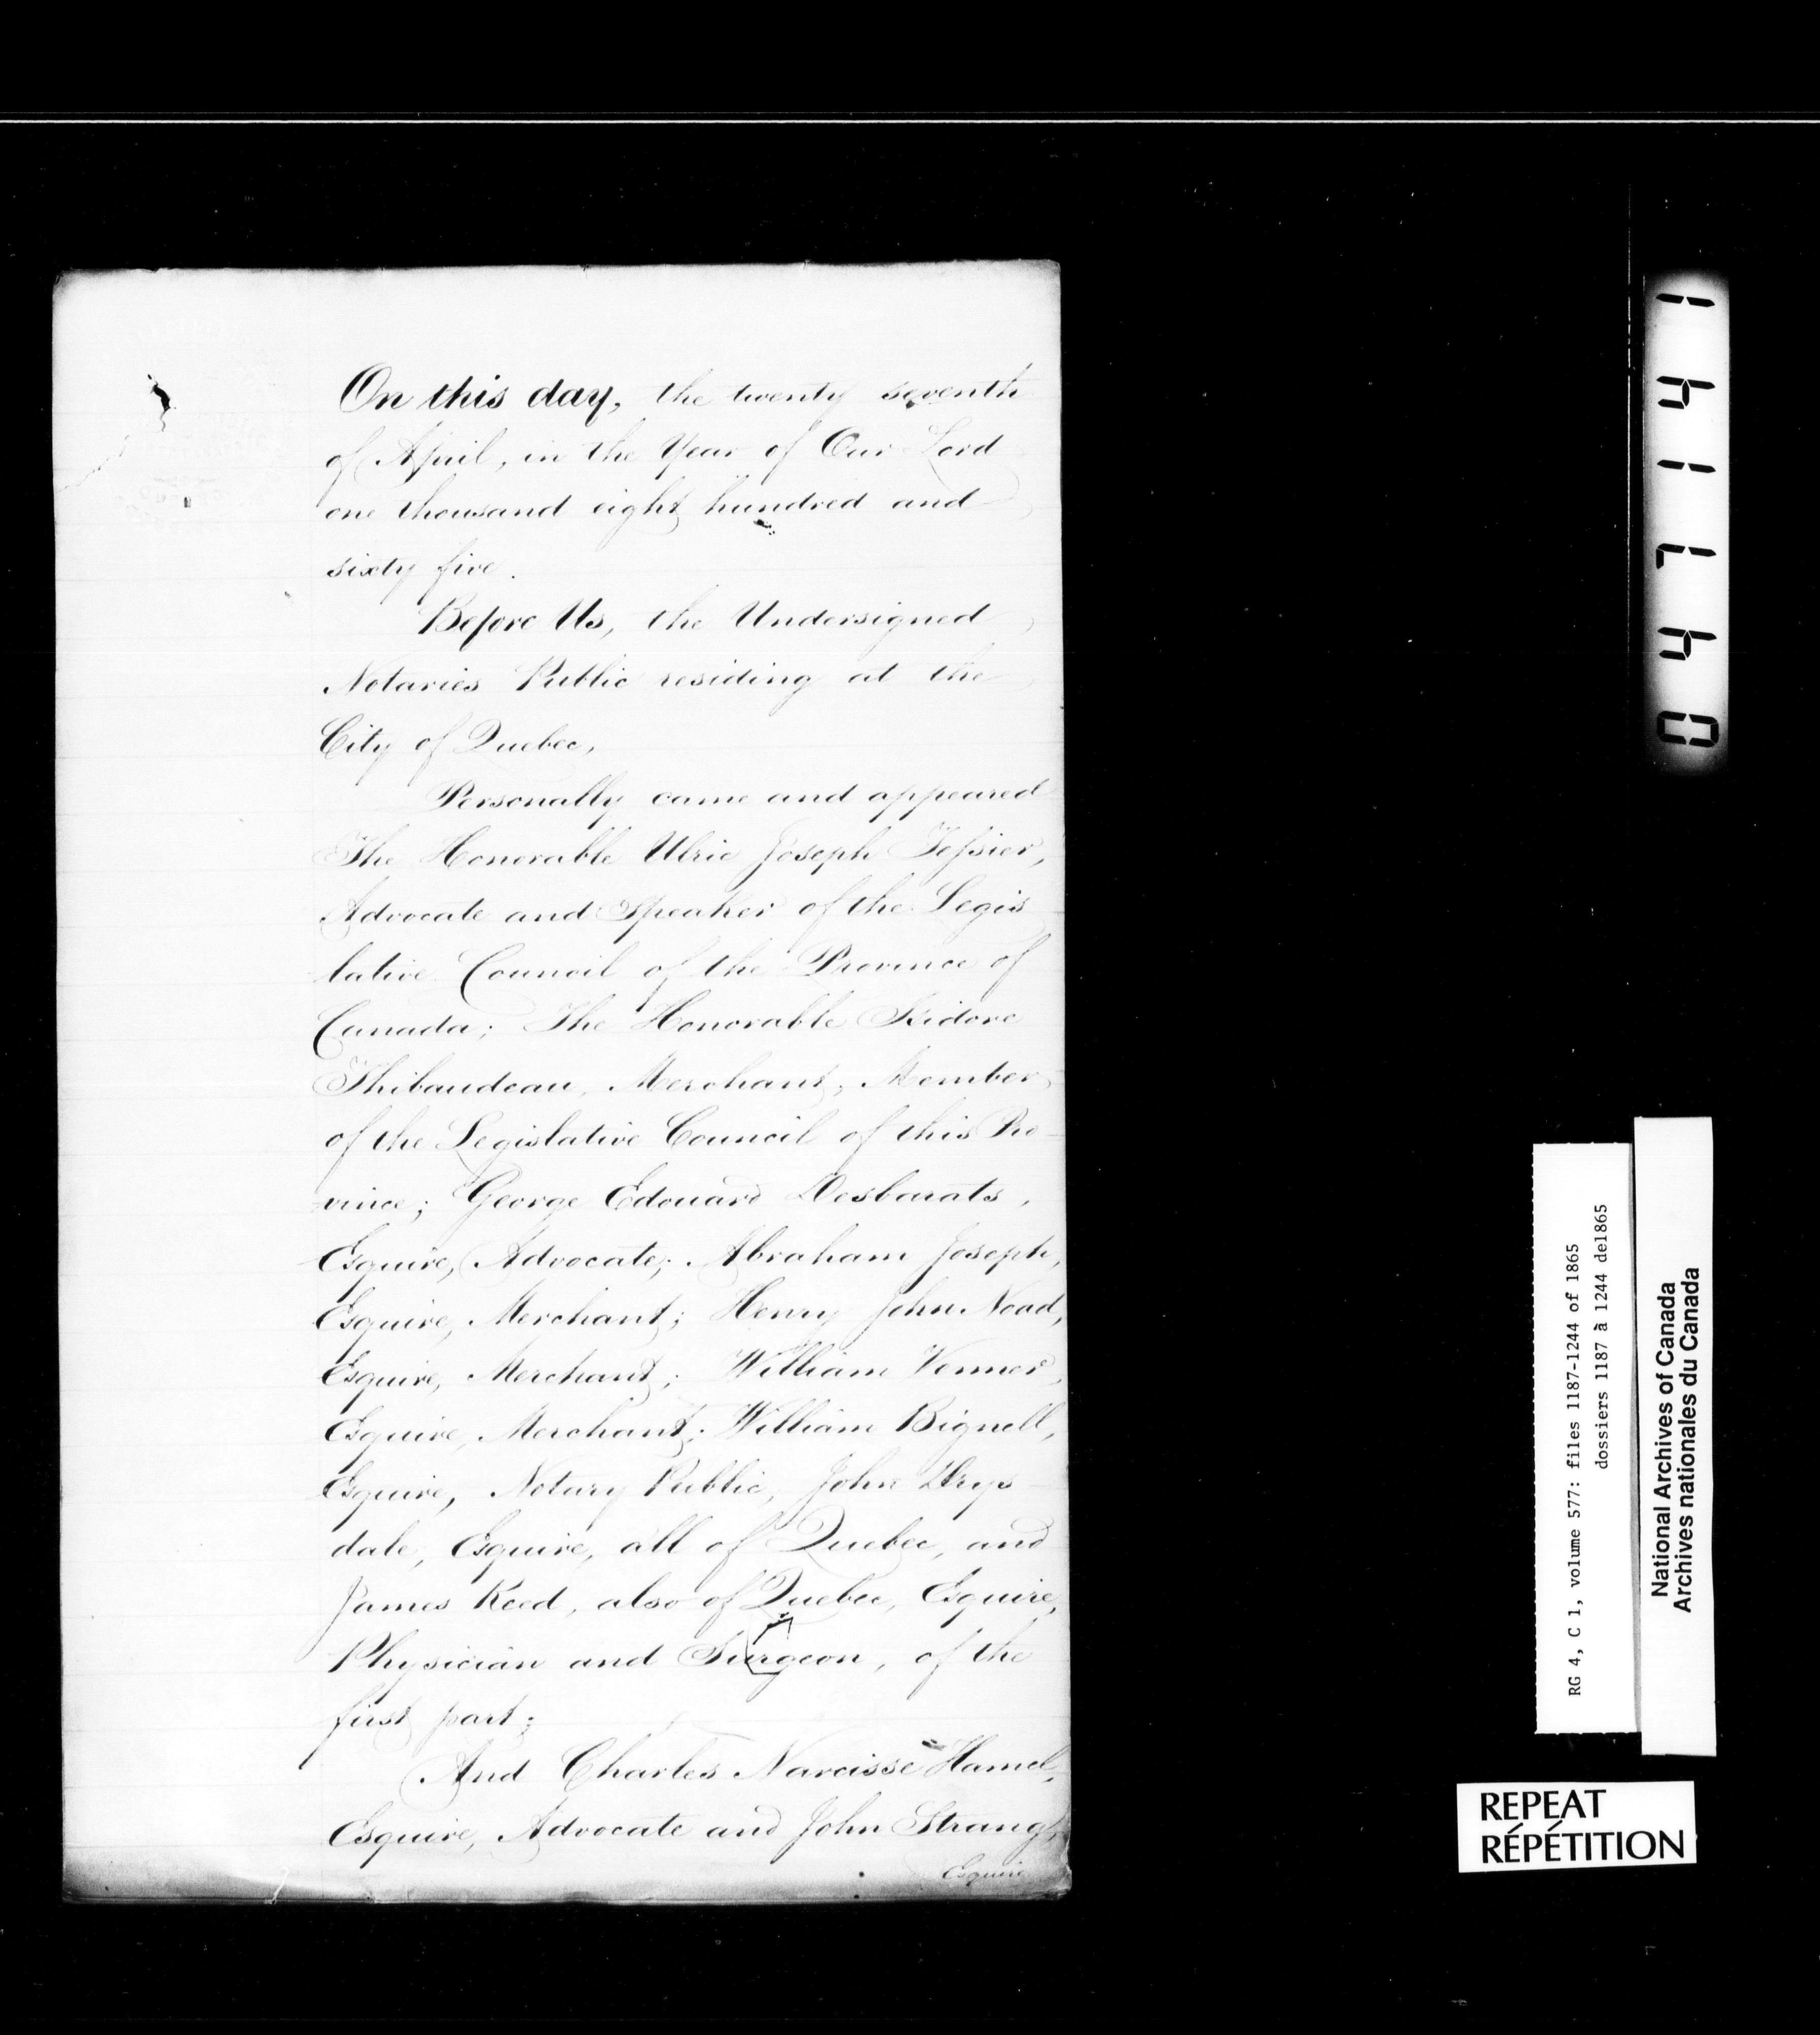 On this day, the twenty seventh
of April, in the Year of Our Lord
one thousand eight hundred and
sixty five.
Before Us, the Undersigned
Notaries Public residing at the
City of Quebec,
Personally came and appeared
The Honorable Ulric Joseph Tessier,
Advocate and Speaker of the Legis
lative Council of the Province of
Canada; The Honorable Isidore
Thibaudeau, Merchant, Member
of the Legislative Council of this Pro-
vince; George Edouard Desbarats,
Esquire, Advocate; Abraham Joseph,
Esquire, Merchant; Henry John Noad,
Esquire, Merchant; William Venner,
Esquire, Merchant; William Bignell,
Esquire, Notary Public, John Drys-
dale, Esquire, all of Quebec, and
James Reed, also of Quebec, Esquire,
Physician and Surgeon, of the
first part;
And Charles Narcisse Hamel,
Esquire, Advocate and John Strang,
Esquire
041414
RG 4, C 1, volume 577: files 1187-1244 of 1865
dossiers 1187 à 1244 de1865
National Archives of Canada
Archives nationales du Canada
REPEAT
RÉPÉTITION